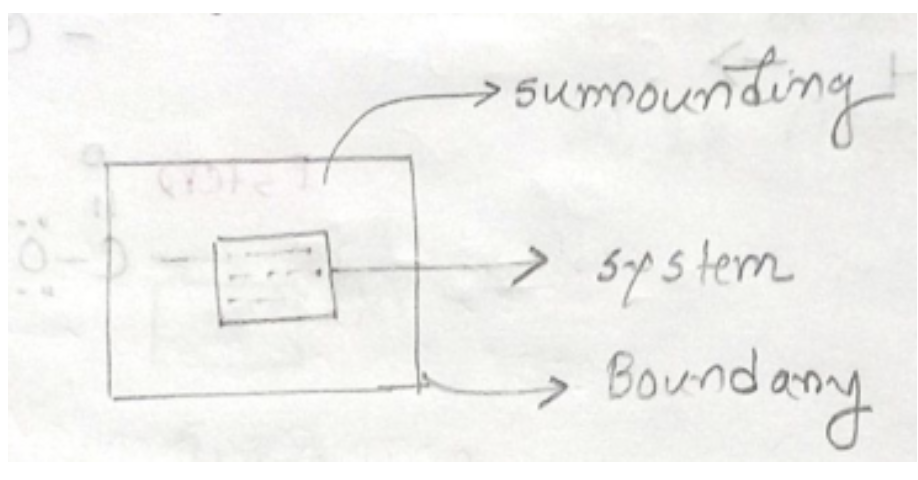 surrounding
system
Boundary